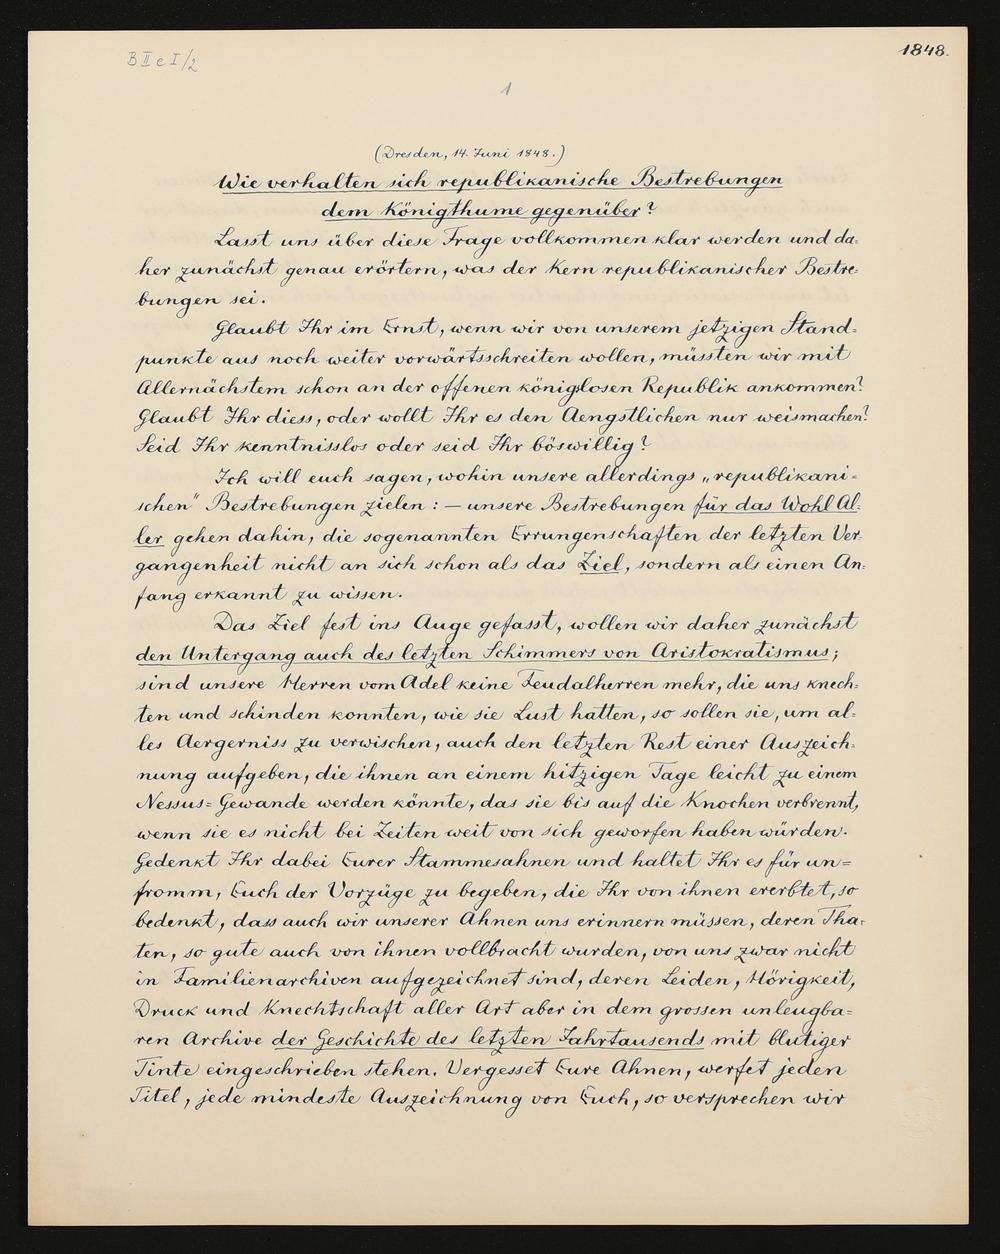 B II c I/2
1848.
1
(Dresden, 14. Juni 1848.)
Wie verhalten sich republikanische Bestrebungen
dem Königthume gegenüber?
Lasst uns über diese Frage vollkommen klar werden und da=
her zunächst genau erörtern, was der Kern republikanischer Bestre=
bungen sei.
Glaubt Ihr im Ernst, wenn wir von unserem jetzigen Stand=
punkte aus noch weiter vorwärtsschreiten wollen, müssten wir mit
Allernächstem schon an der offenen königslosen Republik ankommen?
Glaubt Ihr diess, oder wollt Ihr es den Aengstlichen nur weismachen?
Seid Ihr kenntnisslos oder seid Ihr böswillig?
Ich will euch sagen, wohin unsere allerdings „republikani=
schen" Bestrebungen zielen: — unsere Bestrebungen für das Wohl Al=
ler gehen dahin, die sogenannten Errungenschaften der letzten Ver=
gangenheit nicht an sich schon als das Ziel, sondern als einen An=
fang erkannt zu wissen.
Das Ziel fest ins Auge gefasst, wollen wir daher zunächst
den Untergang auch des letzten Schimmers von Aristokratismus;
sind unsere Herren vom Adel keine Feudalherren mehr, die uns knech=
ten und schinden konnten, wie sie Lust hatten, so sollen sie, um al=
les Aergerniss zu verwischen, auch den letzten Rest einer Auszeich=
nung aufgeben, die ihnen an einem hitzigen Tage leicht zu einem
Nessus=Gewande werden könnte, das sie bis auf die Knochen verbrennt,
wenn sie es nicht bei Zeiten weit von sich geworfen haben würden.
Gedenkt Ihr dabei Eurer Stammesahnen und haltet Ihr es für un=
fromm, Euch der Vorzüge zu begeben, die Ihr von ihnen ererbtet, so
bedenkt, dass auch wir unserer Ahnen uns erinnern müssen, deren Tha=
ten, so gute auch von ihnen vollbracht wurden, von uns zwar nicht
in Familienarchiven aufgezeichnet sind, deren Leiden, Hörigkeit,
Druck und Knechtschaft aller Art aber in dem grossen unleugba=
ren Archive der Geschichte des letzten Jahrtausends mit blutiger
Tinte eingeschrieben stehen. Vergesset Eure Ahnen, werfet jeden
Titel, jede mindeste Auszeichnung von Euch, so versprechen wir